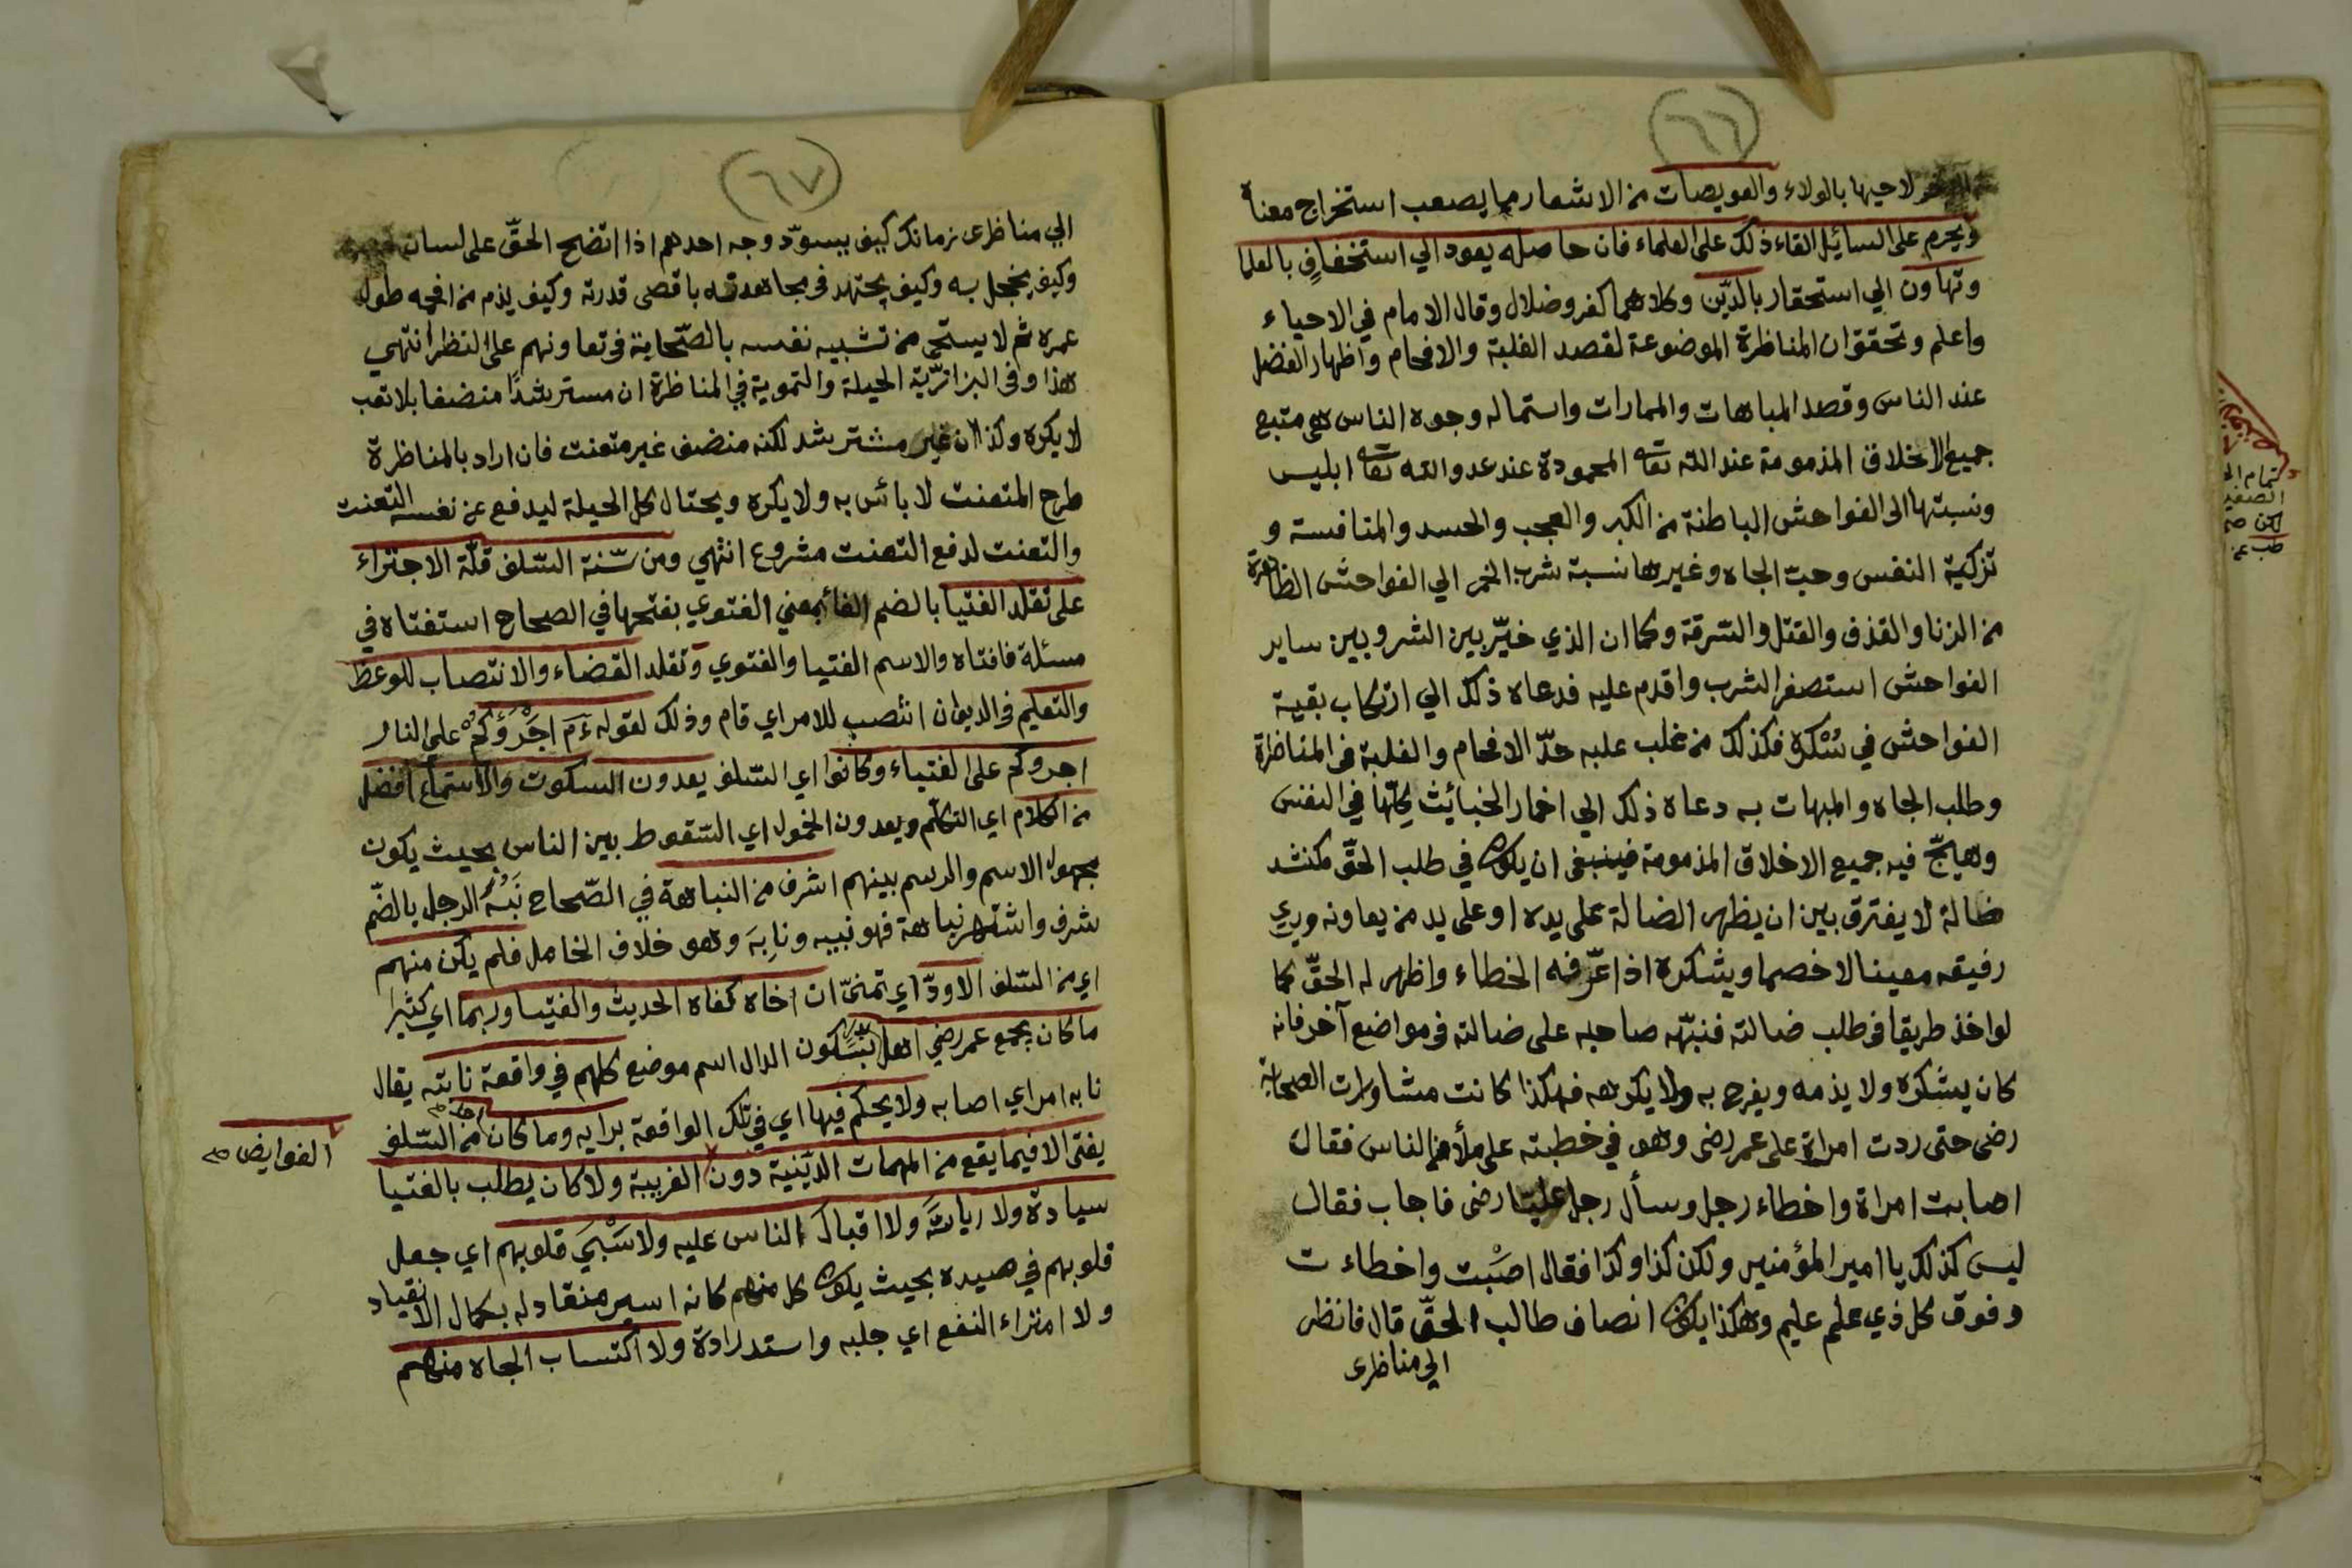 (٦٦)
لاحيها بالولاء والعويصات من الاشعار مما يصعب استخراج معناه
ويحرم على السائيل القاء ذلك على العلماء فان حاصله يعود الي استخفاف بالعلما
وتهاون الي استحقار بالدّين وكلاهما كفر وضلال وقال الامام في الاحياء
واعلم وتحقق ان المناظرة الموضوعة لقصد الغلبة والافحام واظهار الفضل
عند الناس وقصد المباهات والممارات واستماله وجوه الناس هي متبع
جميع الاخلاق المذمومة عند الله تعا المحمودة عند عدو الله تعا ابليس
ونسبتها الى الفواحش الباطنة من الكبر والعجب والحسد والمنافسة و
تزكية النفس وحبّ الجاه وغيرها نسبة شرب الخمر الي الفواحش الظاهرة
من الزنا والقذف والقتل والسّرقة وكما ان الذي خيّر بين الشر وبين ساير
الفواحش استصغر الشرب واقدم عليه فدعاه ذلك الي ارتكاب بقية
الفواحش في سُكره فكذلك من غلب عليه حدّ الافحام والغلبة في المناظرة
وطلب الجاه والمبهات به دعاه ذلك الي اخمار الخبائث كلّها في النفس
وهيّج فيه جميع الاخلاق المذمومة فينبغى ان يكون في طلب الحقّ مكنشد
ضالة لا يفترق بين ان يظهر الضالة على يده او على يد من يعاونه ويري
رفيقه معينا لا خصما ويشكره اذا عرّفه الخطاء واظهر له الحقّ كما
لو اخذ طريقا في طلب ضالته فنبّهه صاحبه على ضالته في مواضع آخر فانه
كان يشكره ولا يذمه ويفرح به ولا يكرهه فهكذا كانت مشاورات الصحابة
رضى حتى ردت امراة على عمر رضى وهو في خطبته على ملأ من الناس فقال
اصابت امراة واخطاء رجل وسأل رجل عليّا رضى فاجاب فقال
ليس كذلك يا امير المؤمنير ولكن كذا وكذا فقال اصَبْت واخطاءت
وفوق كل ذي علم عليم وهكذا يكون انصاف طالب الحقّ قال فانظر
الي مناظرى
(٦٧)
الي مناظرى زمانك كيف يسودّ وجه احدهم اذا اتضح الحقّ على لسان
وكيف يخجل به وكيف يجتهد في مجاهدته باقصى قدرته وكيف يذم من افحمه طول
عمره ثم لا يستحى من تشبيه نفسه بالصّحابة في تعاونهم على النظر انتهي
هذا وفي البزازيّة الحيلة والتموية في المناظرة ان مسترشدًا منضفا بلا تعب
لا يكره وكذا ان غير مشترشد لكنه منضف غير متعنت فان اراد بالمناظرة
طرح المتعنت لا بائس به ولا يكره ويحتال كل الحيلة ليدفع عن نفسه التعنت
والتعنت لدفع التعنت مشروع انتهي ومن سّنة السّلف قلّة الاجتراء
على تقلد الفتيا بالضم الفا بمعني الفتوي بفتحها في الصحاح استفتاه في
مسئلة فافتاه والاسم الفتيا والفتوي وتقلد القضاء والانتصاب للوعظ
والتعليم في الديوان انتصب للامر اي قام وذلك لقوله ءم اجْرَؤُكُمْ على النار
اجروكم على الفتياء وكانوا اي السّلف يعدون السكوت والاستماع افضل
من الكلام اي التكلّم ويعدون الخمول اي السّقوط بين الناس بحيث يكون
مجهول الاسم والرسم بينهم اشرف من النباهة في الصّحاح نَبُهَ الرجل بالضّم
شرف واشتهر نباهة فهو نبيه ونابِهَ وهو خلاف الخامل فلم يكن منهم
اي من السّلف الا ودّ اي تمنىّ ان اخاه كفاه الحديث والفتيا وربما اي كثيرا
ما كان يجمع عمر رضي اهل بَدْر بسَكون الدال اسم موضع كلهم في واقعة نابته يقال
نابه امر اي اصابه ولا يحكم فيها اي في تلك الواقعة برايه وما كان احد من السّلف
يفتى الا فيما يقع من المهمات الدّينية دون الغريبة ولا كان يطلب بالفتيا
الغوايض صح
سيادة ولا رياسَّة ولا اقبال الناس عليه ولا سَبْيَ قلوبهم اي جعل
قلوبهم في صيده بحيث يكون كل منهم كانه اسير منقاد له بكمال الانقياد
ولا امتراء النفع اي جلبه واستدرادة ولا اكتساب الجاه منهم